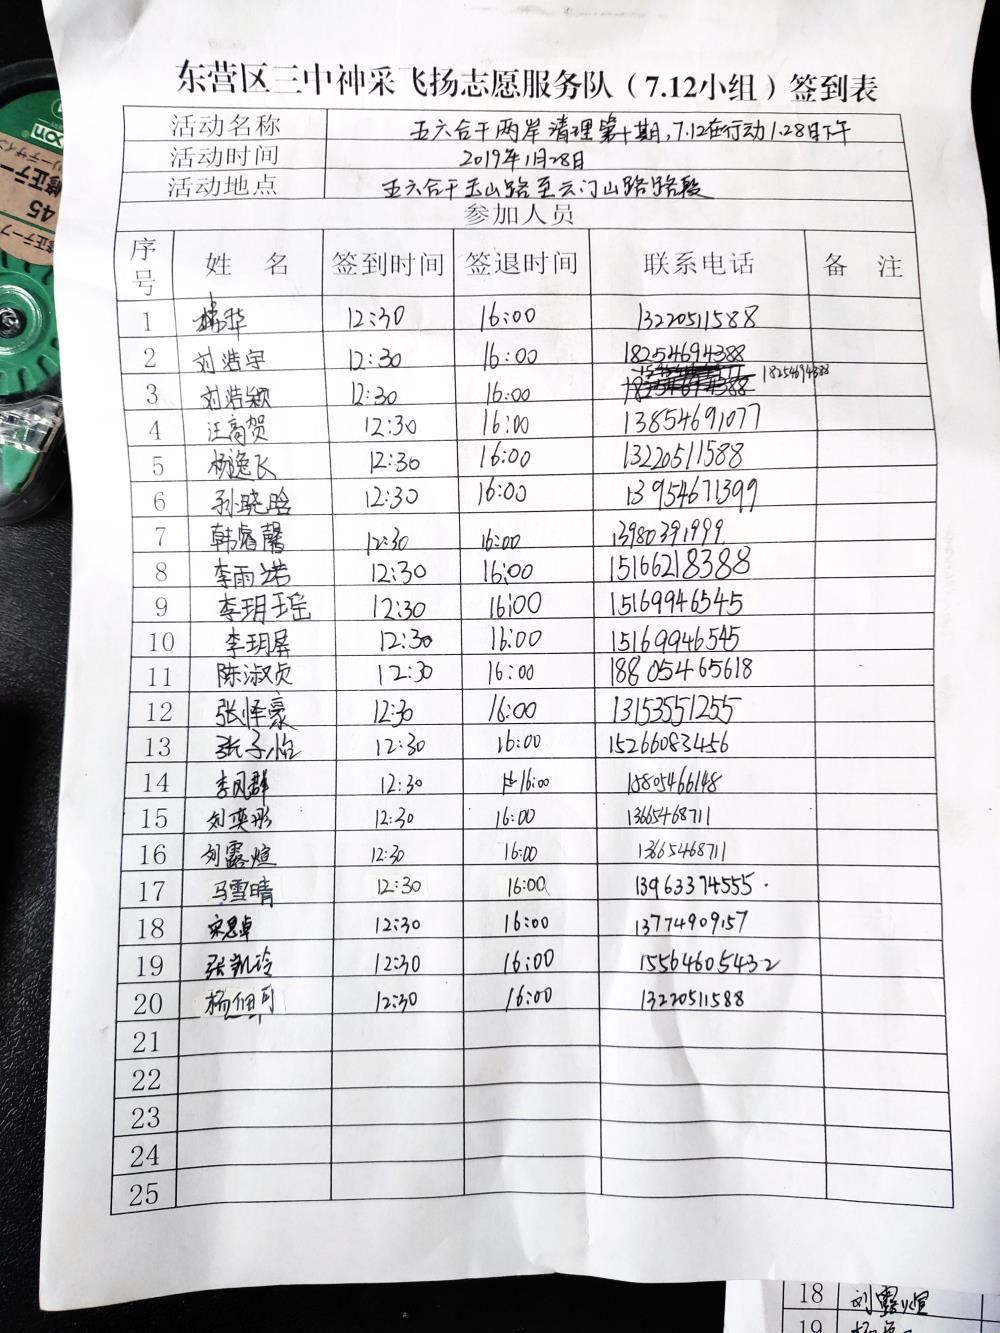 东营区三中神采飞扬志愿服务队（7.12小组）签到表
活动名称 五六合干两岸清理第十期,7.12在行动1.28日下午
活动时间 2019年1月28日
活动地点 五六合干玉山路至云门山路路段
参加人员
序号 姓 名 签到时间 签退时间 联系电话 备 注
1 杨华 12:30 16:00 13220511588
2 刘浩宇 12:30 16:00 18254694388
3 刘浩颖 12:30 16:00 18254694388
4 汪高贺 12:30 16:00 13854691077
5 杨逸飞 12:30 16:00 13220511588
6 孙晓晗 12:30 16:00 13954671399
7 韩睿馨 12:30 16:00 13980391999
8 李雨浩 12:30 16:00 15166218388
9 李玥瑶 12:30 16:00 15169946545
10 李玥屏 12:30 16:00 15169946545
11 陈淑贞 12:30 16:00 18805465618
12 张怿豪 12:30 16:00 13153551255
13 张子怡 12:30 16:00 15266083456
14 李风群 12:30 16:00 15805466148
15 刘奕彤 12:30 16:00 13665468711
16 刘露煊 12:30 16:00 13665468711
17 马雪晴 12:30 16:00 13963374555
18 宋思卓 12:30 16:00 13774909157
19 张凯玲 12:30 16:00 15564605432
20 杨佃可 12:30 16:00 13220511588
21
22
23
24
25
18 刘露煊
19
45
修正テープ